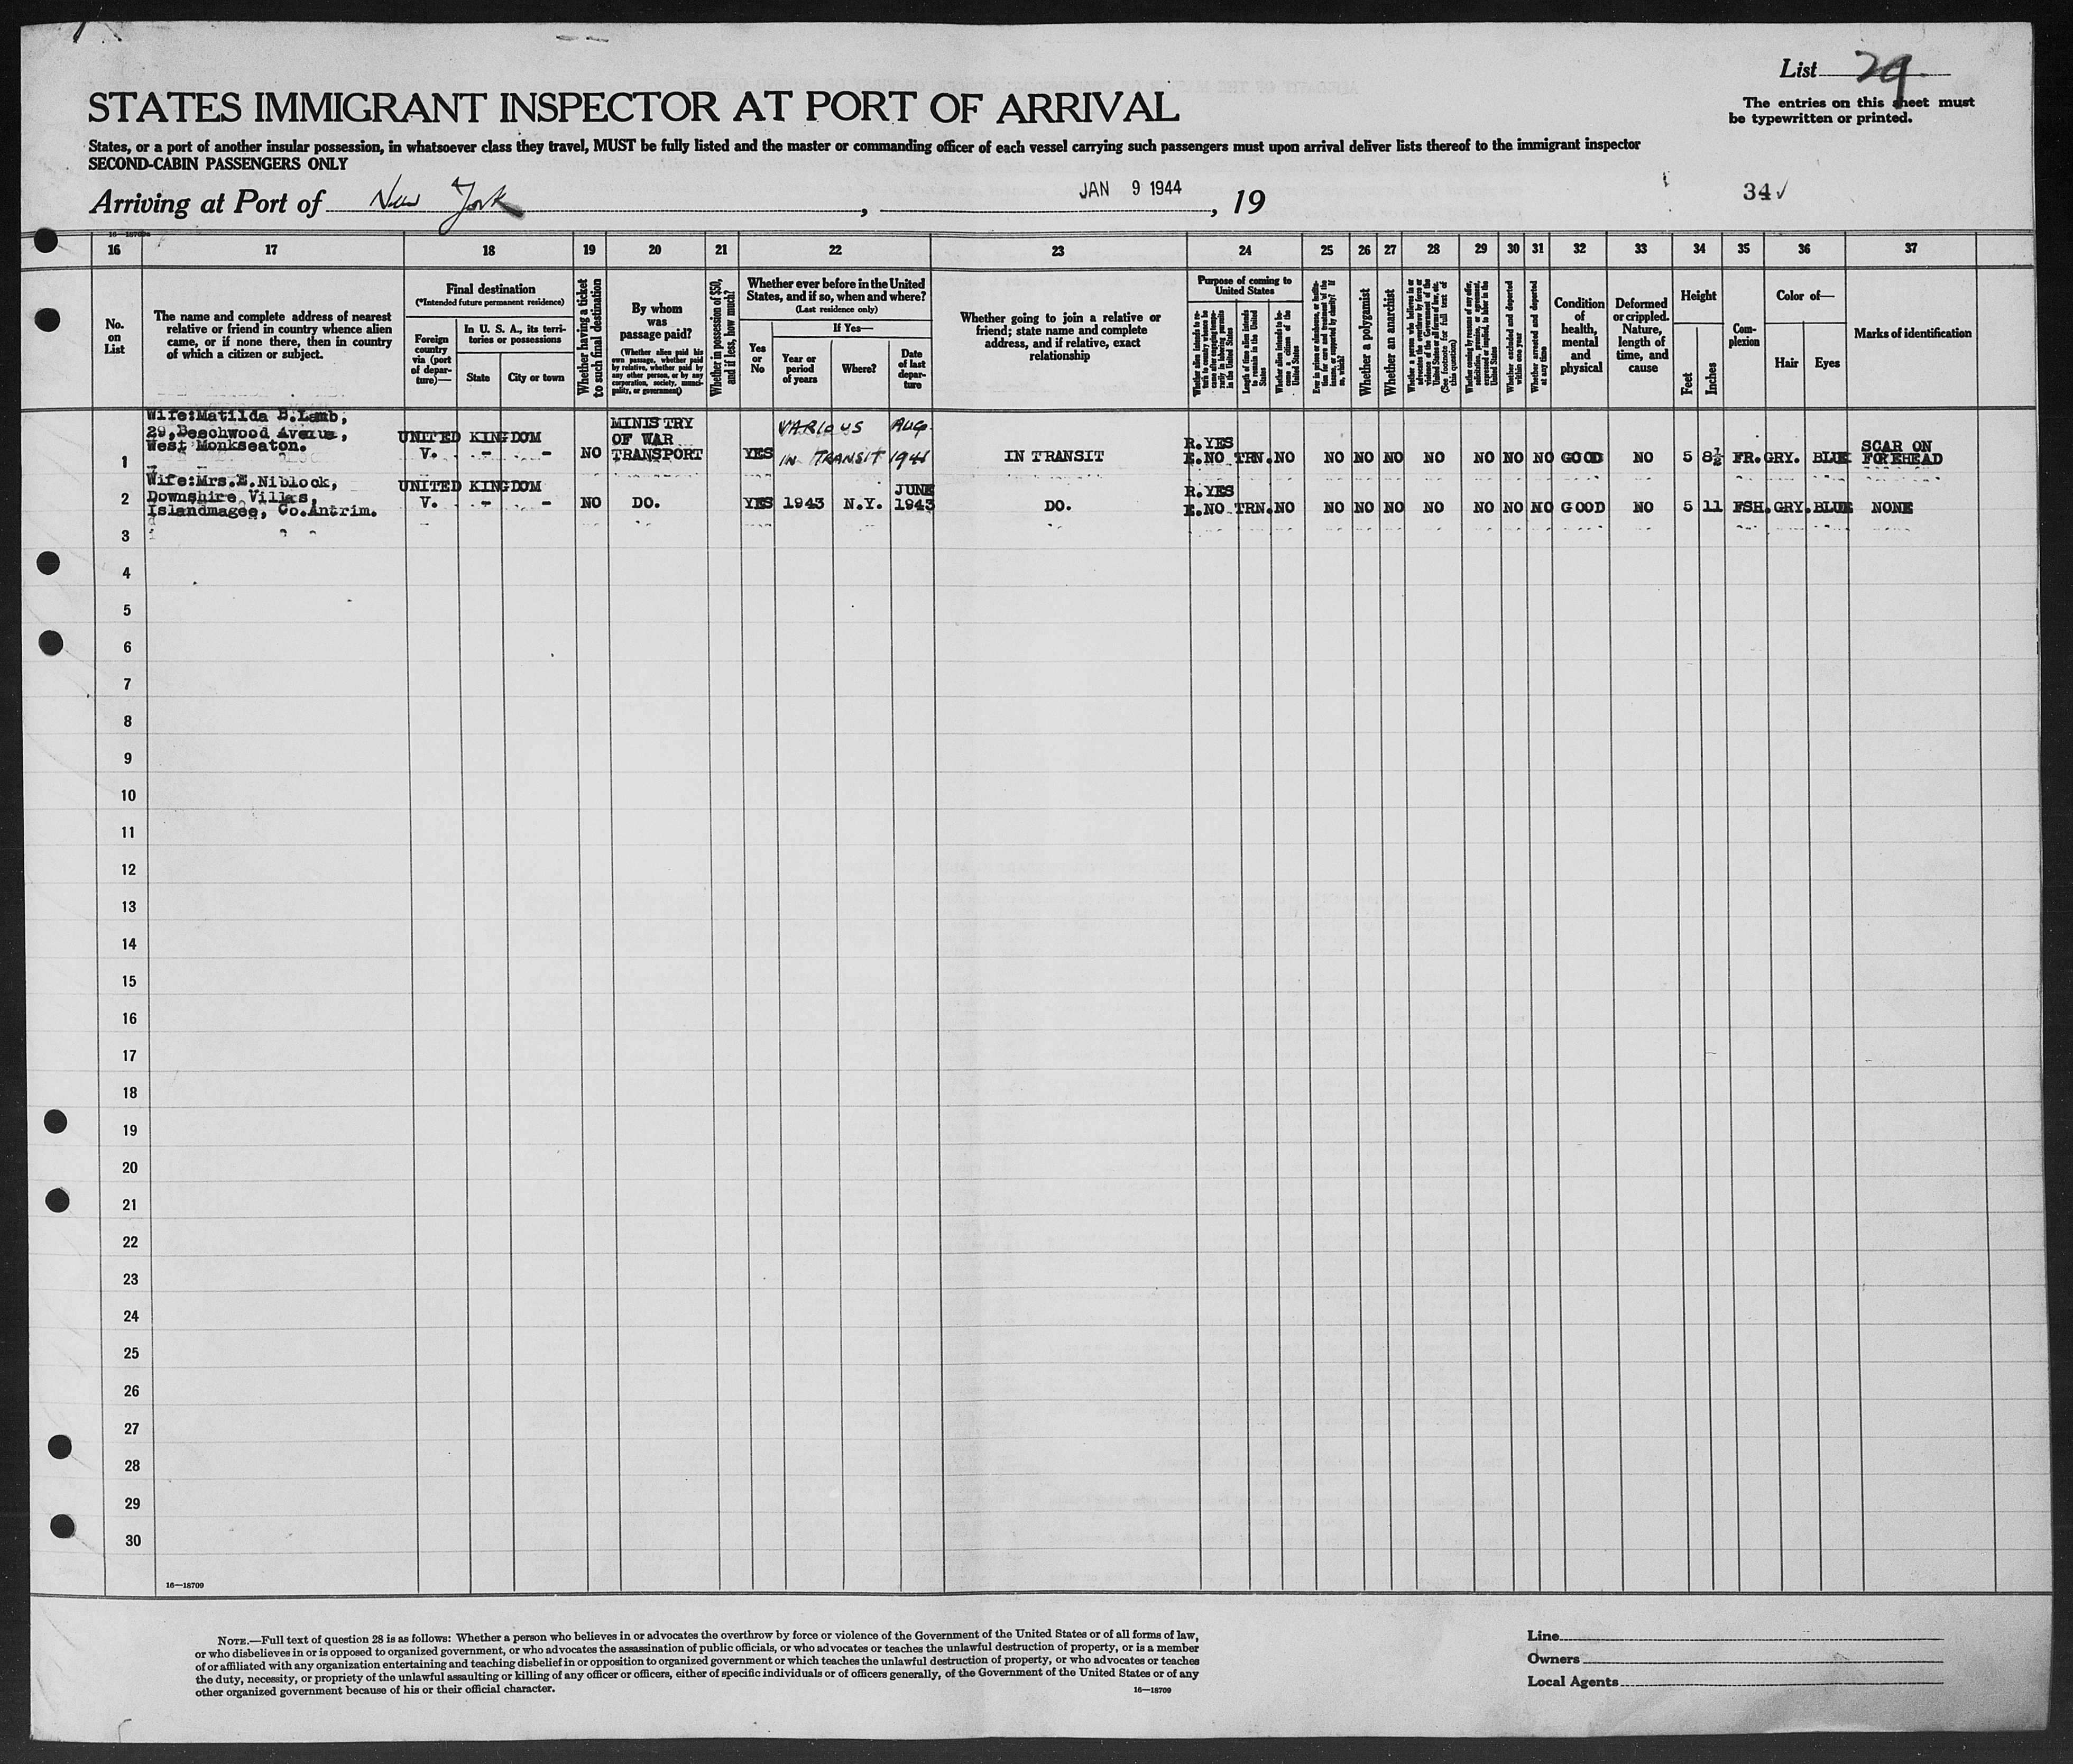 List 29
The entries on this sheet must
be typewritten or printed.
STATES IMMIGRANT INSPECTOR AT PORT OF ARRIVAL
States, or a port of another insular possession, in whatsoever class they travel, MUST be fully listed and the master or commanding officer of each vessel carrying such passengers must upon arrival deliver lists thereof to the immigrant inspector
SECOND-CABIN PASSENGERS ONLY
Arriving at Port of New York, JAN 9 1944, 19
34✓
16 17 18 19 20 21 22 23 24 25 26 27 28 29 30 31 32 33 34 35 36 37
No.
on
List
The name and complete address of nearest
relative or friend in country whence alien
came, or if none there, then in country
of which a citizen or subject.
Final destination
(*Intended future permanent residence)
Foreign
country
via (port
of depar-
ture)—
In U. S. A., its terri-
tories or possessions
State
City or town
Whether having a ticket
to such final destination
By whom
was
passage paid?
(Whether alien paid his
own passage, whether paid
by relative, whether paid by
any other person, or by any
corporation, society, munici-
pality, or government)
Whether in possession of $50,
and if less, how much?
Whether ever before in the United
States, and if so, when and where?
(Last residence only)
Yes
or
No
If Yes—
Year or
period
of years
Where?
Date
of last
depar-
ture
Whether going to join a relative or
friend; state name and complete
address, and if relative, exact
relationship
Purpose of coming to
United States
Length of time alien intends
to remain in the United
States
Whether alien intends to be-
come a citizen of the
United States
Whether a polygamist
Whether an anarchist
Whether excluded and deported
within one year
Whether arrested and deported
at any time
Condition
of
health,
mental
and
physical
Deformed
or crippled.
Nature,
length of
time, and
cause
Height
Feet
Inches
Com-
plexion
Color of—
Hair
Eyes
Marks of identification
Wife:Matilda B.Lamb,
29,Beechwood Avenue,
West Monkseaton.
1 UNITED KINGDOM
V. - -
NO
MINISTRY
OF WAR
TRANSPORT
YES
VARIOUS AUG.
IN TRANSIT 1941
IN TRANSIT
R.YES
E.NO TRN. NO NO NO NO NO NO NO NO GOOD NO 5 8½ FR. GRY. BLUE
SCAR ON
FOREHEAD
Wife:Mrs.E.Niblock,
Downshire Villas,
Islandmagee, Co.Antrim.
2 UNITED KINGDOM
V. - -
NO DO. YES 1943 N.Y.
JUNE
1943
DO.
R.YES
E.NO TRN. NO NO NO NO NO NO NO NO GOOD NO 5 11 FSH. GRY. BLUE NONE
3
4
5
6
7
8
9
10
11
12
13
14
15
16
17
18
19
20
21
22
23
24
25
26
27
28
29
30
16—18709
NOTE.—Full text of question 28 is as follows: Whether a person who believes in or advocates the overthrow by force or violence of the Government of the United States or of all forms of law,
or who disbelieves in or is opposed to organized government, or who advocates the assassination of public officials, or who advocates or teaches the unlawful destruction of property, or is a member
of or affiliated with any organization entertaining and teaching disbelief in or opposition to organized government or which teaches the unlawful destruction of property, or who advocates or teaches
the duty, necessity, or propriety of the unlawful assaulting or killing of any officer or officers, either of specific individuals or of officers generally, of the Government of the United States or of any
other organized government because of his or their official character.
16—18709
Line
Owners
Local Agents